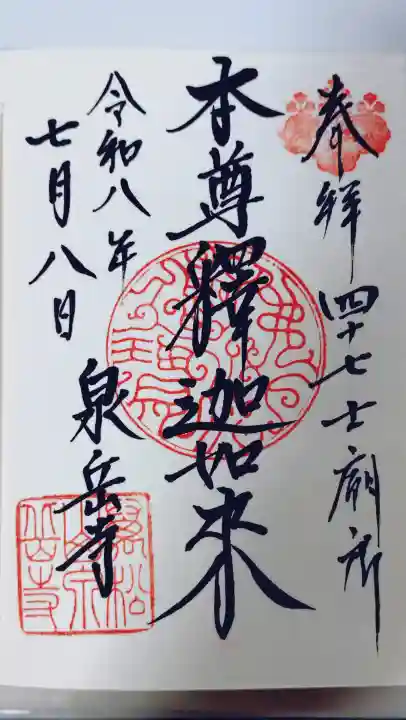 奉拝 四十七士廟所
本尊釋迦如来
令和八年
七月八日
泉岳寺